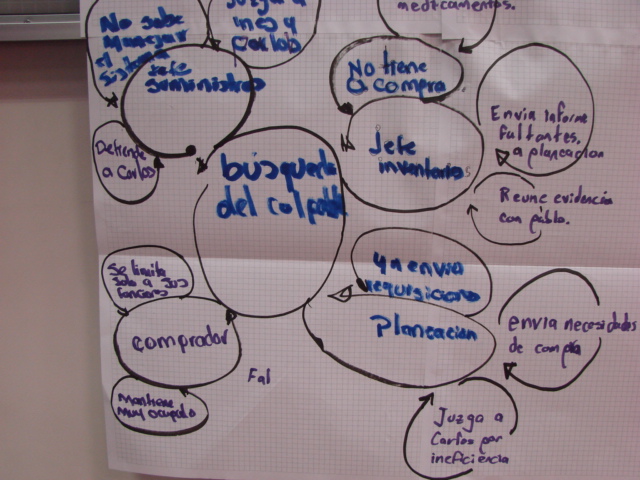 No sabe
Manejar
el
Sistema
Jefe
Suministros
Juzga a
Ines y
Carlos
medicamentos.
No tiene
q compra
Jefe
inventarios
Envia informe
faltantes.
a planeacion
Reune evidencia
con pablo.
Defiende
a Carlos
búsqueda
del culpable
Se limita
solo a sus
comprador
Mantiene
Muy ocupado
Fal
Ya envio
requisiciones
Planeacion
envia necesidades
de compra
Juzga a
Carlos por
ineficiencia